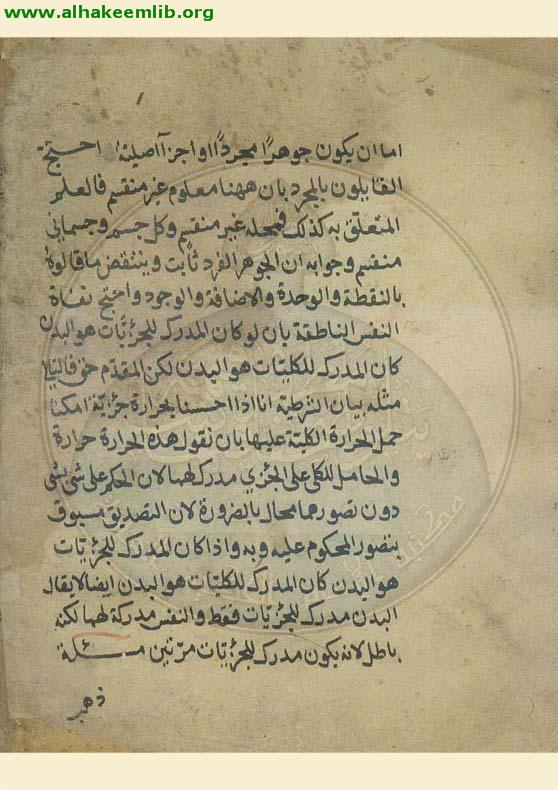 www.alhakeemlib.org
اما ان يكون جوهرًا مجردًا او اجزآ اصيلية احتج
القايلون بالمجرد بان ههنا معلوم غير منقسم فالعلم
المتعلق به كذلك فمحله غير منقسم وكل جسم وجسمانى
منقسم وجوابه ان الجوهر الفرد ثابت وينتقض ما قالوه
بالنقطة والوحدة والاضافة والوجود واحتج نفاة
النفس الناطقة بان لو كان المدرك للجزئيّات هو البدن
كان المدرك للكليّات هو البدن لكن المقدّم حق فالتالى
مثله بيان الشرطية انا اذا احسسنا بحرارة جزئية امكننا
حمل الحرارة الكلية عليها بان نقول هذه الحرارة حرارة
والحامل للكلى على الجزئي مدرك لهما لان الحكم على شئ بشئ
دون تصورهما محال بالضرورة لان التصديق مسبوق
بتصور المحكوم عليه وبه واذا كان المدرك للجزئيّات
هو البدن كان المدرك للكليّات هو البدن ايضا لا يقال
البدن مدرك للجزئيّات فقط والنفس مدركة لهما لكنه
باطل لانه يكون مدرك للجزئيّات مرّتين مسئلة
ذهب